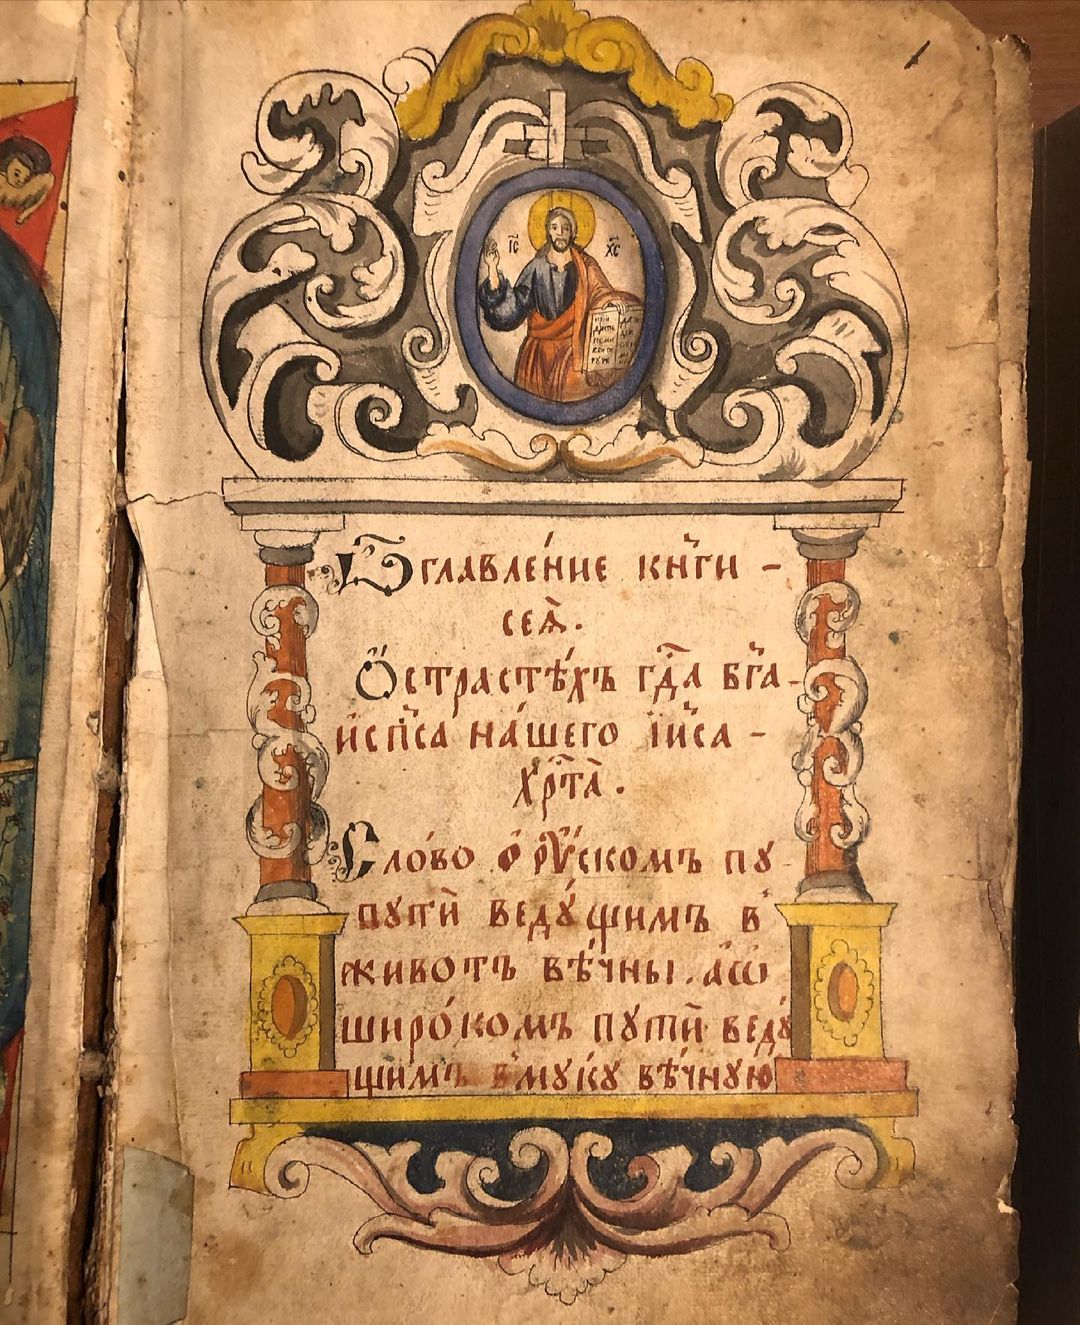 І҃С Х҃С
Ѡглавле́ніе кни҃ги -
сея̀.
Ѻ страсте́хъ гд҃а бг҃а -
и҆ сп҃са на́шего і҆и҃са -
хр҃та̀.
Сло́во ѻ҆ ꙋ҆ском пу -
пути̑ веду́щимъ в̾
животъ вѣ́чны. а҆ ѡ҆
широ́комъ пути̑ веду́
щимъ в̾ муку вѣ́чную